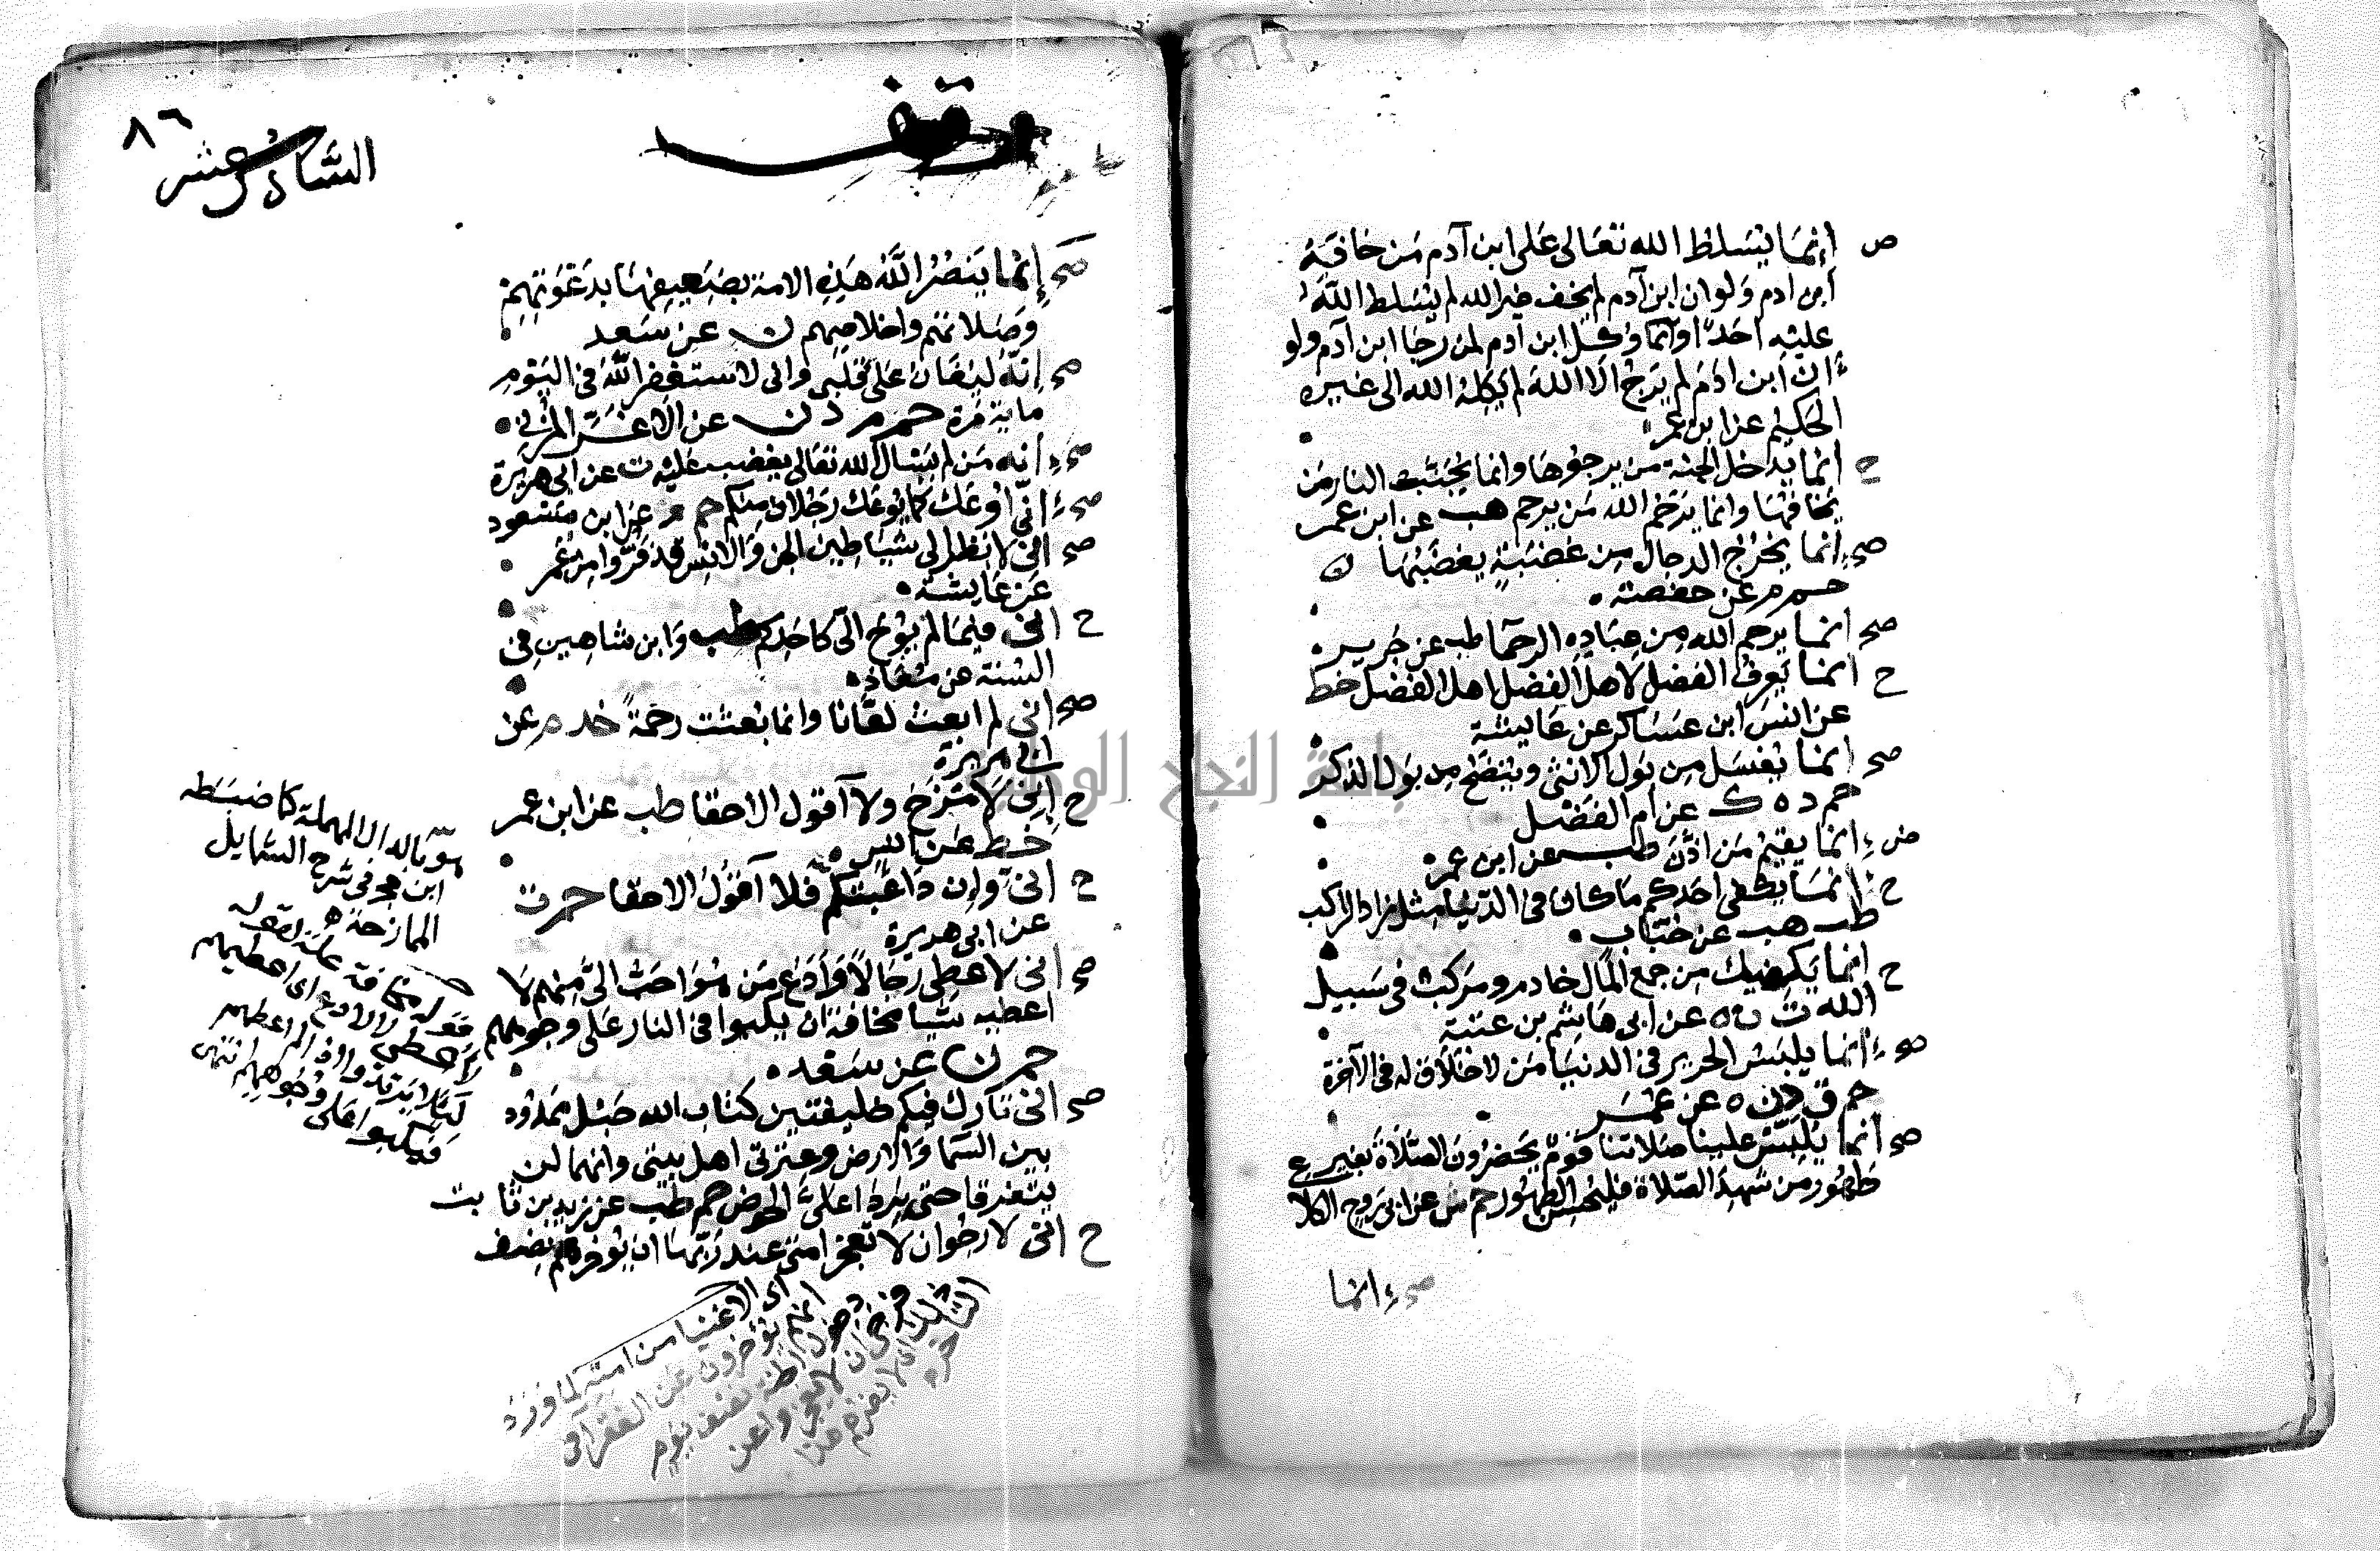 ض إنما يسلط الله تعالى على ابن آدم من خافه
ابن ادم ولو ان ابن آدم لم يخف غير الله لم يسلط الله
عليه احدا وانما وكل ابن ادم لمن رجا ابن آدم ولو
ان ابن ادم لم يرج الا الله لم يكله الله الى غيره
الحكيم عن ابن عمر
ح انما يدخل الجنة من يرجوها وانما يجنب النار من
يخافها وانما يرحم الله من يرحم هب عن ابن عمر
صح انما يخرج الدجال من غضبة يغضبها
حم م عن حفصة
صح انما يرحم الله من عباده الرحما طب عن جرير
ح انما يعرف الفضل لاهل الفضل اهل الفضل خط
عن انس ابن عساكر عن عايشة
صح انما يغسل من بول الانثى وينضح من بول الذكر
حم د ه ك عن ام الفضل
ض انما يقيم من اذن طب عن ابن عمر
ح انما يكفي احدكم ما كان في الدنيا مثل زاد الراكب
طب هب عن خباب
ح انما يكفيك من جمع المال خادم ومركب في سبيل
الله ت ن ه عن ابي هاشم بن عتبة
صح انما يلبس الحرير في الدنيا من لا خلاق له في الآخرة
حم ق د ن ه عن عمر
صح انما يلبس علينا صلاتنا قوم يحضرون الصلاة بغير
طهور من شهد الصلاة فليحسن الطهور حم ش عن ابي روح الكلا
صح انما
٨٦
السادس عشر
وقف
صح إنما ينصر الله هذه الامة بضعيفها بدعوتهم
وصلاتهم واخلاصهم ن عن سعد
صح انه ليغان على قلبي واني لاستغفر الله في اليوم
ماية مرة حم م د ن عن الاغر المزني
صح انه من لم يسال الله تعالى يغضب عليه ت عن ابي هريرة
صح اني اوعك كما يوعك رجلان منكم حم م عن ابن مسعود
صح اني لانظر الى شياطين الجن والانس قد فروا من عمر
عن عايشة
ح اني فيما لم يوح الي كاحدكم طب وابن شاهين في
السنة عن معاذ
صح اني لم ابعث لعانا وانما بعثت رحمة خد م عن
ابي هريرة
ح إني لامزح ولا آقول الا حقا طب عن ابن عمر
خط عن انس
ح اني وإن داعبتكم فلا آقول الا حقا حم ت
عن ابي هريرة
صح اني لاعطي رجالا وأدع من هو احب الي منهم لا
اعطيه شيا مخافة ان يكبوا في النار على وجوههم
حم ن عن سعد
صح اني تارك فيكم خليفتين كتاب الله حبل ممدود
بين السما والارض وعترتي اهل بيتي وانهما لن
يتفرقا حتى يردا على الحوض حم طب عن زيد بن ثابت
ح اني لارجوان لا تعجز امتي عند ربها ان يوخرهم نصف
هو بالدال المهملة كما ضبطه
ابن حجر في شرح الشمايل
الممازحة
قوله مخافة علة لقوله
لاعطي لا لادع اي اعطيهم
ليلا يرتدوا لو لم اعطهم
فيكبوا على وجوههم انتهى
اي الاغنيا من امته
انهم يؤخرون عن الفقرا